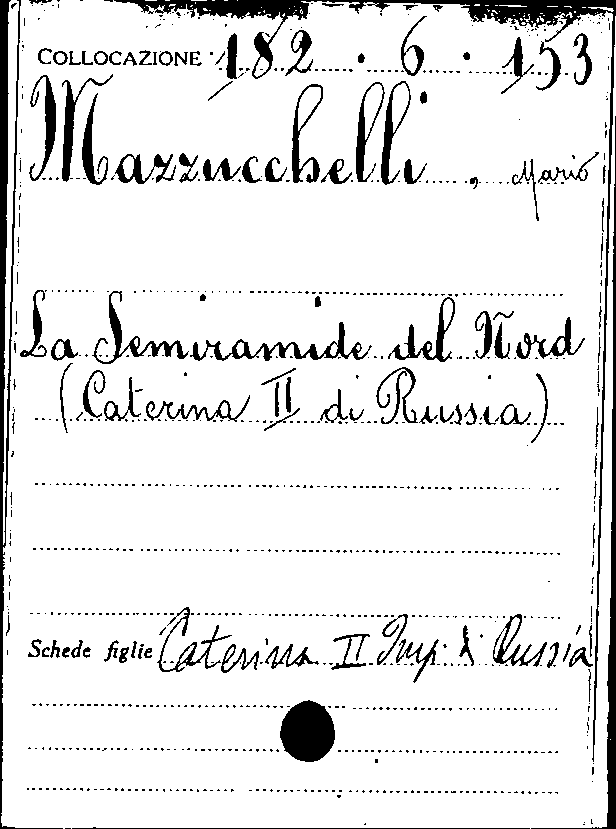 COLLOCAZIONE 182 . 6 . 153
Mazzucchelli , Mario
La Semiramide del Nord
(Caterina II di Russia)
Schede figlie Caterina II Imp. di Russia